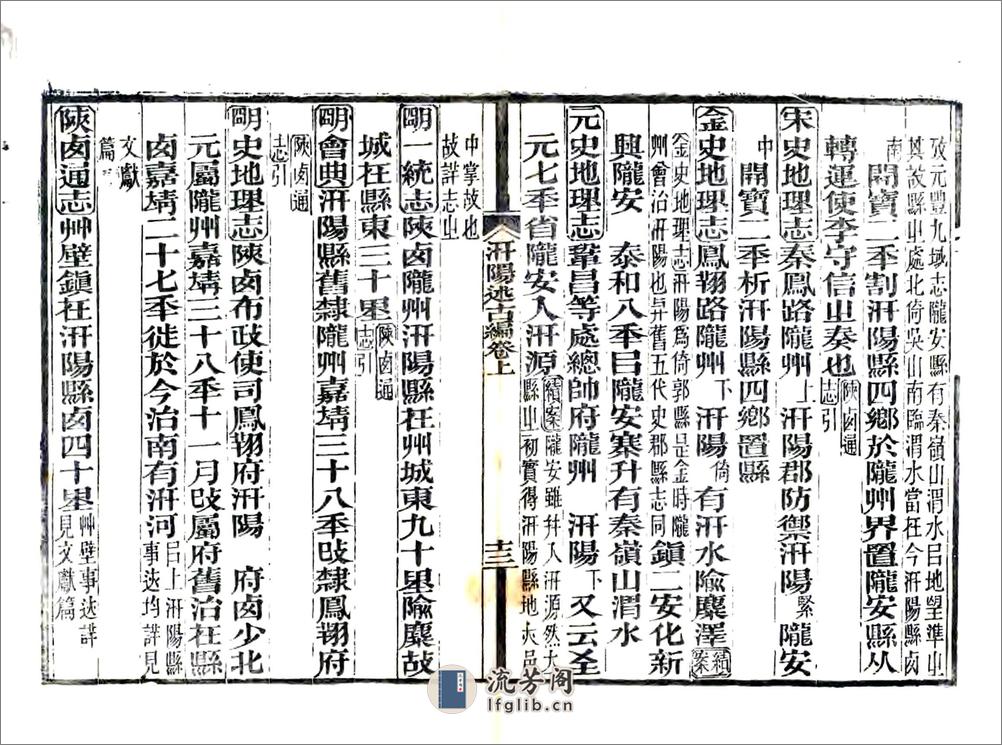 攷元豐九域志隴安縣有秦嶺山渭水㠯地望準㞢
其故縣㞢處北倚吳山南臨渭水當在今汧陽縣卥
南 開寶二秊割汧陽縣四鄉於隴州界置隴安縣从
轉運使李守信㞢奏也陝卥通志引
宋史地理志秦鳳路隴州上 汧陽郡防禦汧陽緊 隴安
中 開寶二秊析汧陽縣四鄉置縣
金史地理志鳳翔路隴州下 汧陽倚 有汧水隃麋澤續案
金史地理志汧陽爲倚郭縣是金時隴
州會治汧陽也弁舊五代史郡縣志同
鎮二安化新
興隴安 泰和八秊㠯隴安寨升有秦嶺山渭水
元史地理志鞏昌等處總帥府隴州 汧陽下 又云至
元七秊省隴安入汧源續案
隴安雖幷入汧源然大
縣㞢初實得汧陽縣地
汧陽述古編卷上
十三
中掌故也
故詳志㞢
明一統志陝卥隴州汧陽縣在州城東九十里隃麋故
城在縣東三十里陝卥通志引
明會典汧陽縣舊隸隴州嘉靖三十八秊攺隸鳳翔府
陝卥通志引
明史地理志陝卥布政使司鳳翔府汧陽 府卥少北
元屬隴州嘉靖三十八秊十一月攺屬府舊治在縣
卥嘉靖二十七秊徙於今治南有汧河㠯上汧陽縣事迹均詳見
文獻
篇
陝卥通志艸壁鎮在汧陽縣卥四十里艸壁事迹詳見文獻篇
流芳阁
lfglib.cn